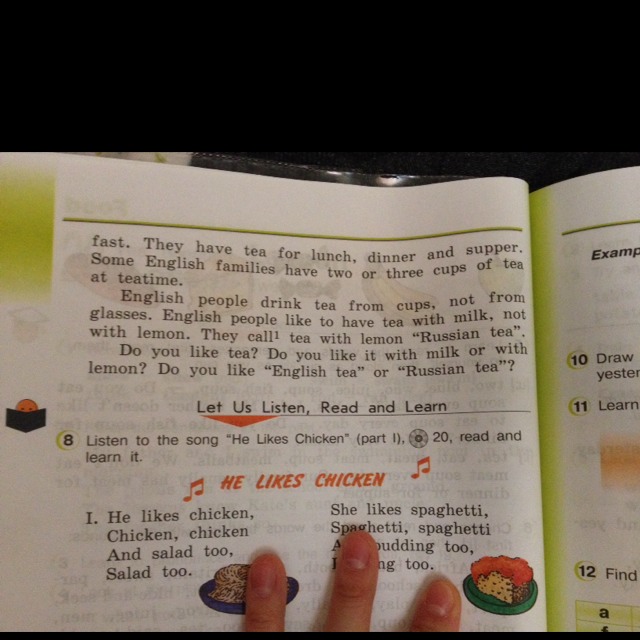 fast. They have tea for lunch, dinner and supper.
Some English families have two or three cups of tea
at teatime.
English people drink tea from cups, not from
glasses. English people like to have tea with milk, not
with lemon. They call¹ tea with lemon “Russian tea”.
Do you like tea? Do you like it with milk or with
lemon? Do you like “English tea” or “Russian tea”?
Let Us Listen, Read and Learn
8 Listen to the song “He Likes Chicken” (part I), 20, read and
learn it.
HE LIKES CHICKEN
I. He likes chicken,
Chicken, chicken
And salad too,
Salad too.
She likes spaghetti,
Spaghetti, spaghetti
pudding too,
too.
10 Draw
11 Learn
12 Find
a